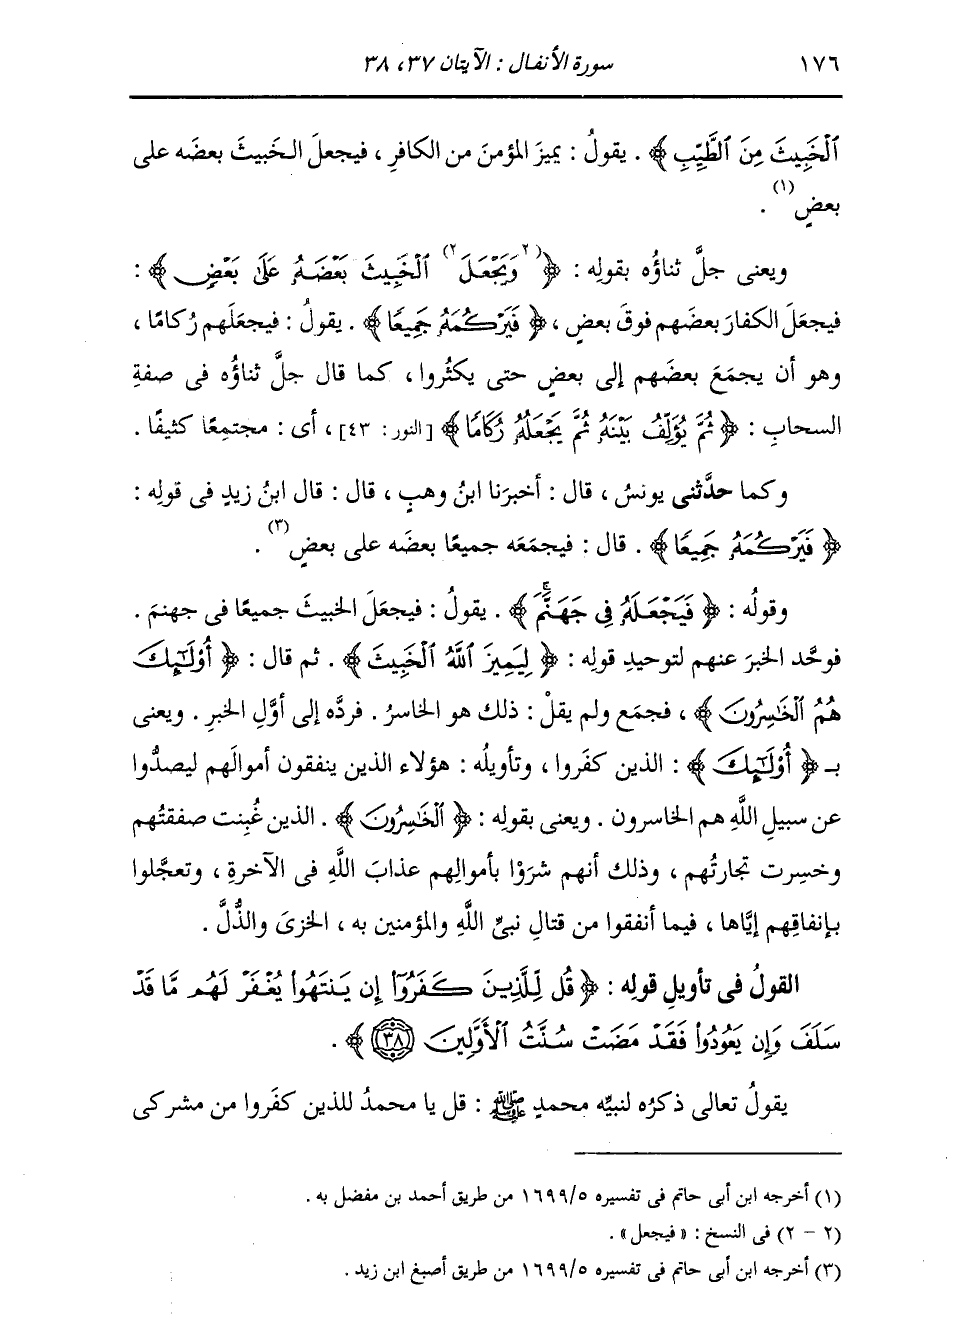 ١٧٦ سورة الأنفال : الآيتان ٣٧، ٣٨
ٱلْخَبِيثَ مِنَ ٱلطَّيِّبِ ﴾ . يقولُ : يميزَ المؤمنَ من الكافرِ ، فيجعلَ الخبيثَ بعضَه على
بعضٍ(١) .
ويعنى جلَّ ثناؤُه بقولِه : ﴿ (٢ وَيَجْعَلَ ٢) ٱلْخَبِيثَ بَعْضَهُۥ عَلَىٰ بَعْضٍ ﴾ :
فيجعلَ الكفارَ بعضَهم فوقَ بعضٍ ، ﴿ فَيَرْكُمَهُۥ جَمِيعًا ﴾ . يقولُ : فيجعلَهم رُكامًا ،
وهو أن يجمَعَ بعضَهم إلى بعضٍ حتى يكثُروا ، كما قال جلَّ ثناؤُه فى صفةِ
السحابِ : ﴿ ثُمَّ يُؤَلِّفُ بَيْنَهُۥ ثُمَّ يَجْعَلُهُۥ رُكَامًا ﴾ [النور: ٤٣] ، أى : مجتمِعًا كثيفًا .
وكما حدَّثنى يونسُ ، قال : أخبرَنا ابنُ وهبٍ ، قال : قال ابنُ زيدٍ فى قولِه :
﴿ فَيَرْكُمَهُۥ جَمِيعًا ﴾ . قال : فيجمَعَه جميعًا بعضَه على بعضٍ(٣) .
وقولُه : ﴿ فَيَجْعَلَهُۥ فِى جَهَنَّمَۚ ﴾ . يقولُ : فيجعلَ الخبيثَ جميعًا فى جهنمَ .
فوحَّد الخبرَ عنهم لتوحيدِ قولِه : ﴿ لِيَمِيزَ ٱللَّهُ ٱلْخَبِيثَ ﴾ . ثم قال : ﴿ أُو۟لَٰٓئِكَ
هُمُ ٱلْخَٰسِرُونَ ﴾ ، فجمَع ولم يقلْ : ذلك هو الخاسرُ . فردَّه إلى أوَّلِ الخبرِ . ويعنى
بـ ﴿ أُو۟لَٰٓئِكَ ﴾ : الذين كفَروا ، وتأويلُه : هؤلاء الذين ينفقون أموالَهم ليصدُّوا
عن سبيلِ اللَّهِ هم الخاسرون . ويعنى بقولِه : ﴿ ٱلْخَٰسِرُونَ ﴾ . الذين غُبِنت صفقتُهم
وخسِرت تجارتُهم ، وذلك أنهم شرَوْا بأموالِهم عذابَ اللَّهِ فى الآخرةِ ، وتعجَّلوا
بإنفاقِهم إيَّاها ، فيما أنفقوا من قتالِ نبىِّ اللَّهِ والمؤمنين به ، الخزىَ والذُّلَّ .
القولُ فى تأويلِ قولِه : ﴿ قُل لِّلَّذِينَ كَفَرُوٓا۟ إِن يَنتَهُوا۟ يُغْفَرْ لَهُم مَّا قَدْ
سَلَفَ وَإِن يَعُودُوا۟ فَقَدْ مَضَتْ سُنَّتُ ٱلْأَوَّلِينَ ٣٨ ﴾ .
يقولُ تعالى ذكرُه لنبيِّه محمدٍ ﷺ : قل يا محمدُ للذين كفَروا من مشركى
(١) أخرجه ابن أبى حاتم فى تفسيره ١٦٩٩/٥ من طريق أحمد بن مفضل به .
(٢ - ٢) فى النسخ : « فيجعل » .
(٣) أخرجه ابن أبى حاتم فى تفسيره ١٦٩٩/٥ من طريق أصبغ ابن زيد .